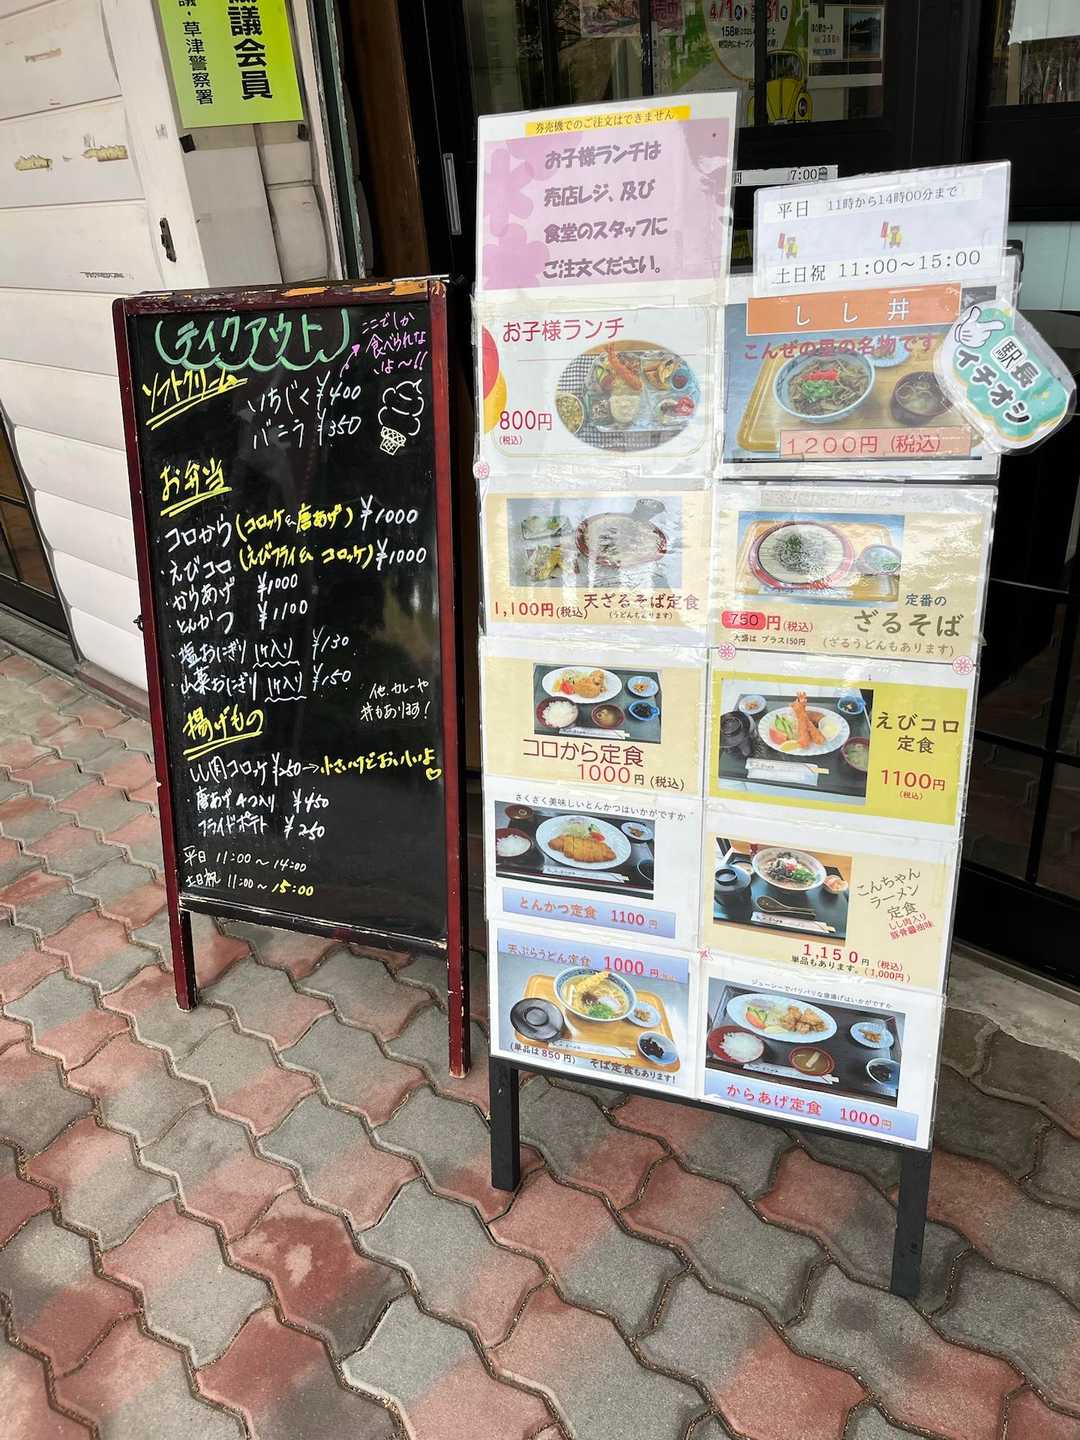 議会員
議・草津警察署
テイクアウト
ここでしか
食べられな
いよ～!!
ソフトクリーム
いちじく ¥400
バニラ ¥350
お弁当
・コロから(コロッケ&唐あげ) ¥1000
・えびコロ(えびフライ& コロッケ) ¥1000
・からあげ ¥1000
・とんかつ ¥1100
・塩おにぎり 1ケ入り ¥130
・山菜おにぎり 1ケ入り ¥150
他、カレーや
丼もあります!
揚げもの
・しし肉コロッケ ¥250→小さいけどおいしいよ♡
・唐あげ4つ入り ¥450
フライドポテト ¥250
平日 11:00～14:00
土日祝 11:00～15:00
券売機でのご注文はできません
お子様ランチは
売店レジ、及び
食堂のスタッフに
ご注文ください。
お子様ランチ
800円
(税込)
1,100円(税込) 天ざるそば定食
(うどんもあります)
コロから定食
1000円(税込)
さくさく美味しいとんかつはいかがですか
とんかつ定食 1100円
天ぷらうどん定食 1000円
(単品は850円) そば定食もあります!
7:00
平日 11時から14時00分まで
土日祝 11:00～15:00
しし丼
こんぜの里の名物です
1200円(税込)
駅長
イチオシ
定番の
750円(税込) ざるそば
大盛は プラス150円 (ざるうどんもあります)
えびコロ
定食
1100円
(税込)
こんちゃん
ラーメン
定食
しし肉入り
豚骨醤油味
1,150円(税込)
単品もあります。(1,000円)
ジューシーでパリパリな唐揚げはいかがですか
からあげ定食 1000円